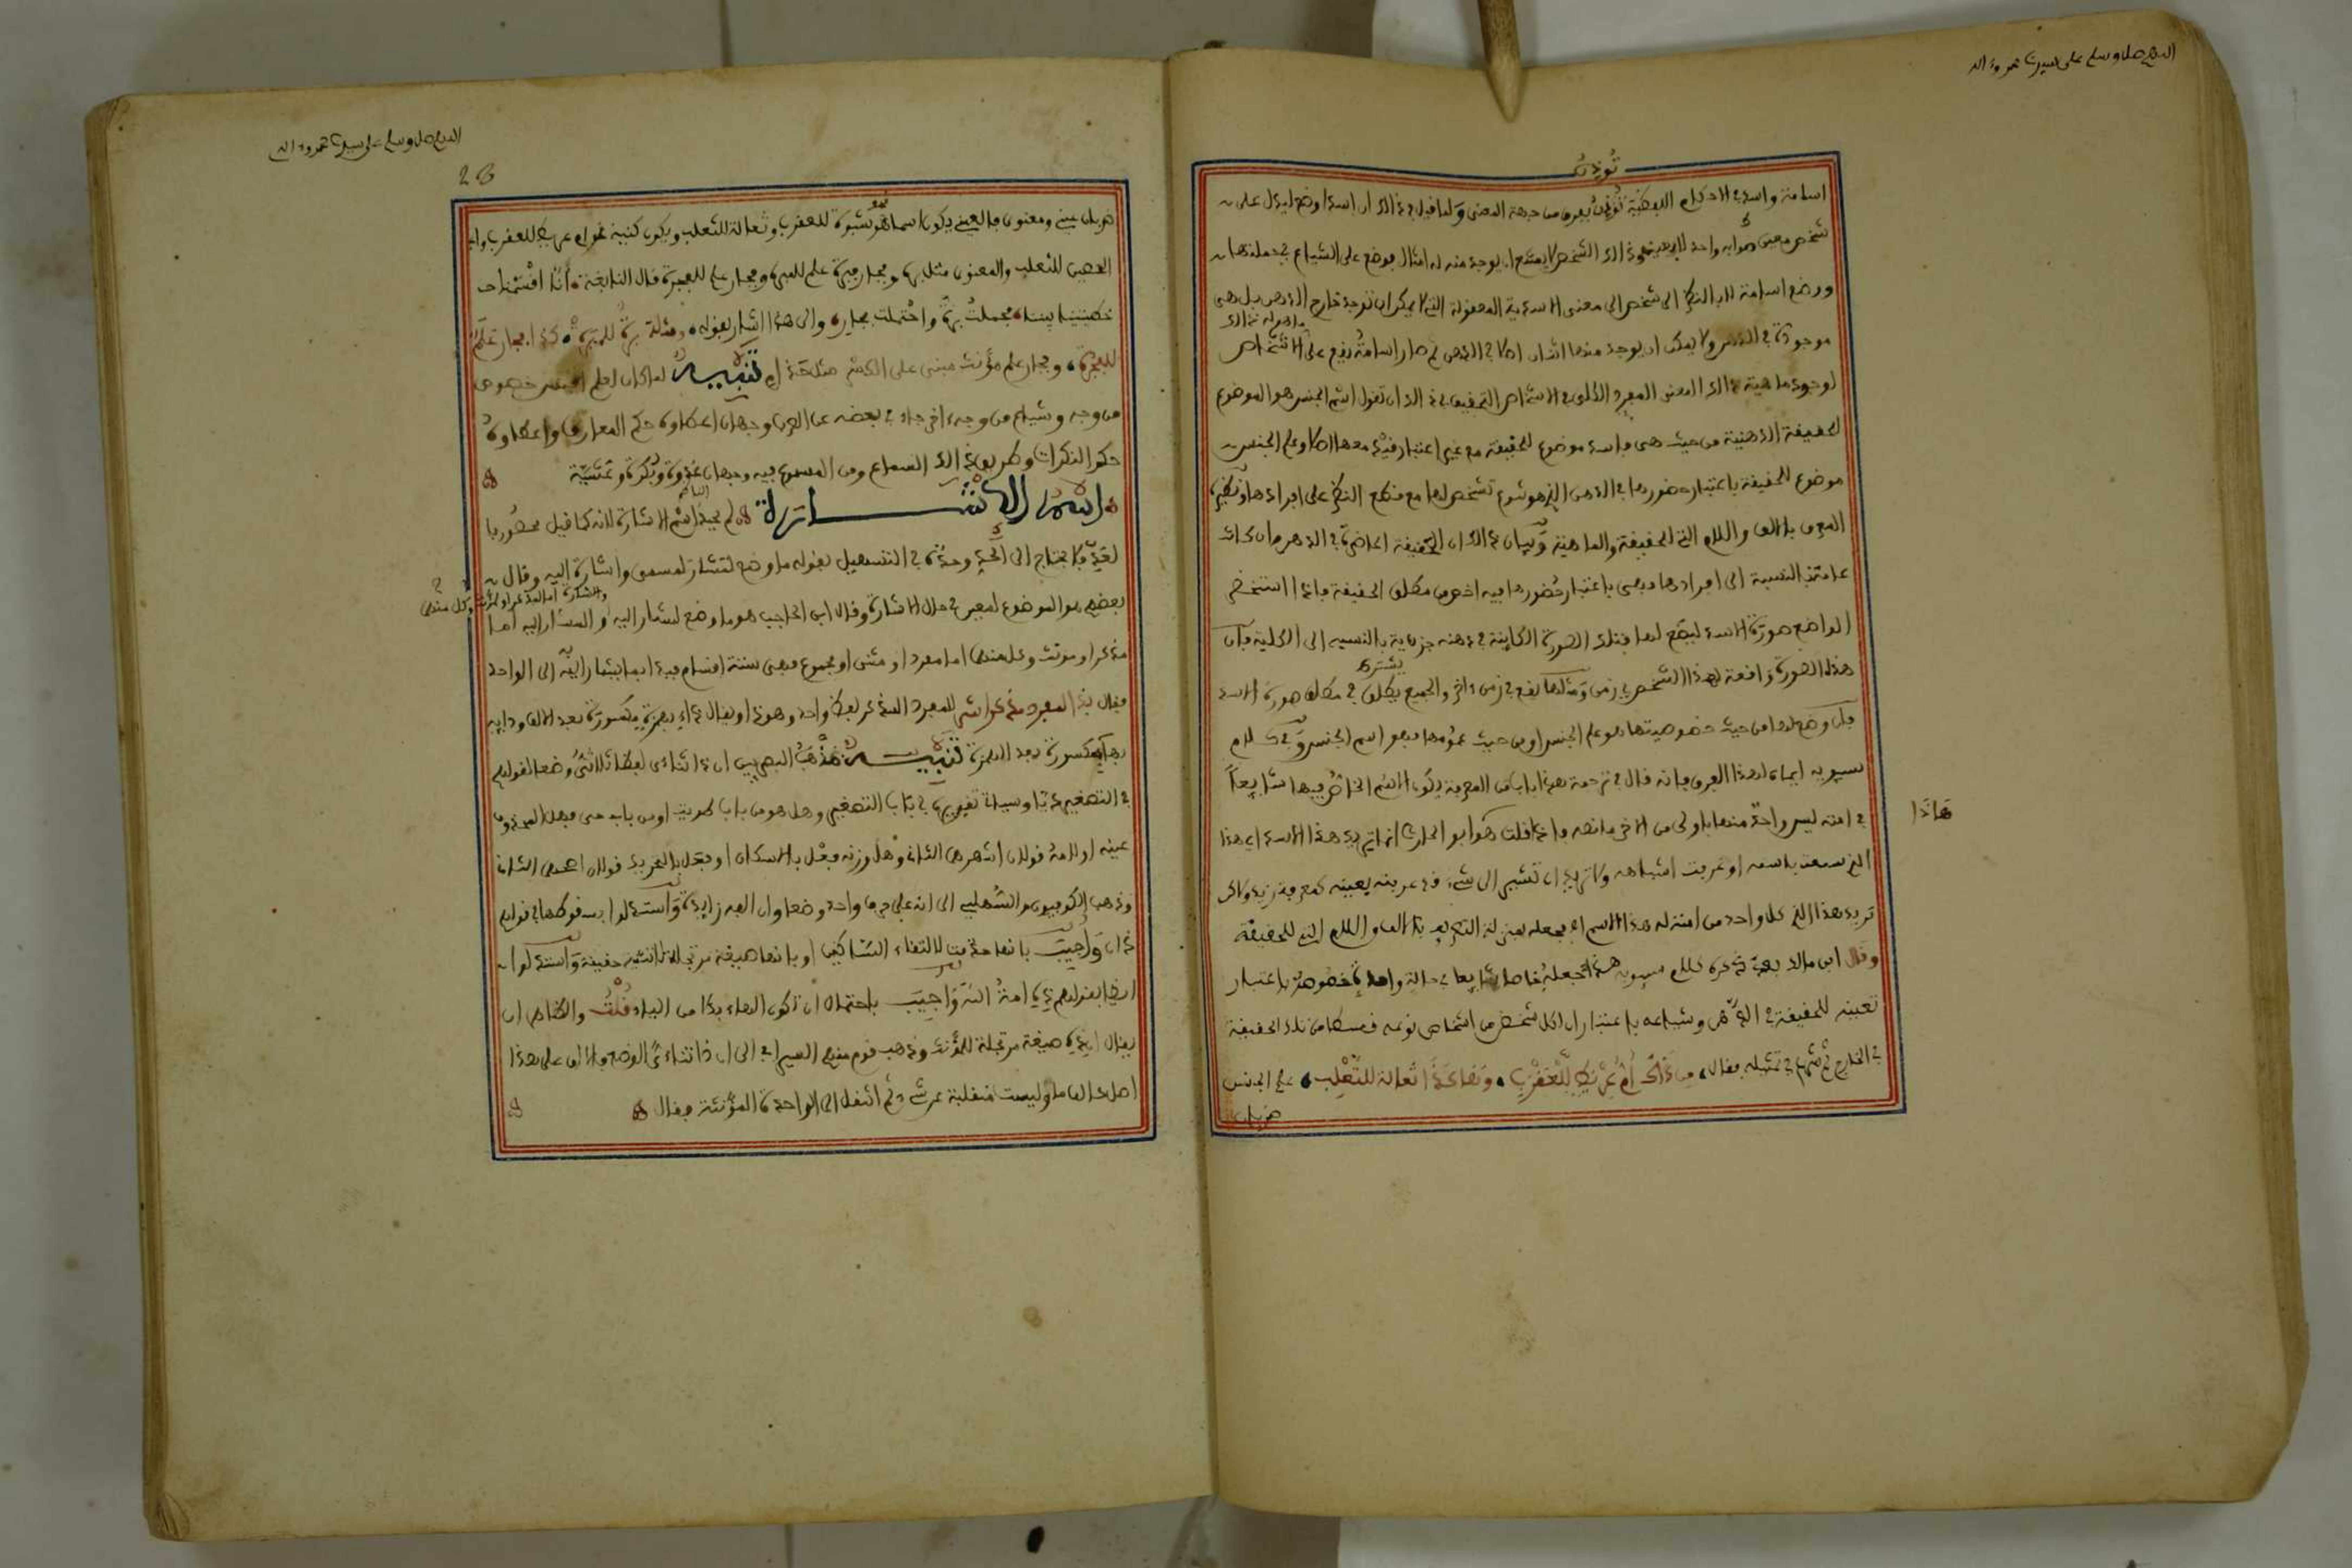 اللهم صل وسلم على سيدنا محمد وءاله
تُؤذِنُ
اسامة واسد في الاحكام اللفظية تُؤذِنُ بفرق من جهة المعنى ولما قيل في ذالك ان اسدا وضع ليدل على
شخص معين صوابه واحد لا بعينه وذالك الشخص لا يمتنع ان يوجد منه امثال فوضع على الشياع في جملتها
ووضع اسامة لا بالنظر الى شخص الى معنى الاسدية المعقولة التي لا يمكن ان توجد خارج الذهن بل هي
موجودة في الذهن ولا يمكن ان يوجد منها اثنان اصلا في الذهن ثم صار اسامة يقع على الاشخاص
لوجود ماهية ذالك المعنى المفرد الكلي في الاشخاص التحقيق في ذالك ان تقول اسم الجنس هو الموضوع
للحقيقة الذهنية من حيث هي فاسد موضوع للحقيقة من غير اعتبار قيد معها اصلا وعلم الجنس
موضوع للحقيقة باعتبار حضورها في الذهن الذي هو نوع تشخص لها مع قطع النظر على افرادها ونظيره
المعرف بالالف واللام التي للحقيقة والماهية وبيان ذالك ان الحقيقة الحاضرة في الذهن وان كانت
عامة بالنسبة الى افرادها فهي باعتبار حُضورها فيه اخص من مطلق الحقيقة فاذا استحضر
الواضع صورة الاسد ليضع لها فتلك الصورة الكاينة في ذهنه جزءية بالنسبه الى الكلية فان
هذه الصورة واقعة لهذا الشخص في زمن ومثلها يقع في زمن ءاخر والجميع يشترك في مطلق صورة الاسد
فان وضع لها من حيث خصوصيتها فهو علم الجنس او من حيث عمومها فهو اسم الجنس وفي كلام
سيبويه ايماء لهذا الفرق فانه قال في ترجمة هذا باب من المعرفة يكون الاسم الخاصّ فيها شايعاً
في امته ليس واحدٌ منها باولى من الاخر ما نصه واذا قلت هذا ابو الحارث انما تريد هذا الاسد اي هذا
هَاذَا
الذي سمعت باسمه او عرفت اشباهه ولا تريد ان تشير الى شيء قد عرفته بعينه كمعرفة زيد ولاكن
تريد هذا الذي كل واحد من امته له هذا الاسم اه فجعله بمنزلة التعريف بالالف واللام التي للحقيقة
وقال ابن مالك بعد ذكره كلام سيبويه هذا تجعلهُ خاصا شايعا في حالة واحدة فخصوصه باعتبار
تعيينه للحقيقة في الذهن وشياعه باعتبار ان لكل شخص من اشخاص نوعه قسطا من تلك الحقيقة
في الخارج ثم شرع في تمثيله فقال، مِن ذَاكَ أُمُّ عِرْيَطٍ لِلْعَقْرَبِ، وَهَاكَذَا ثُعَالةٌ للثَّعْلَبِ، علم الجنس
ضربان
اللهم صل وسلم على سيدنا محمد وءاله
28
ضربان عيني ومعنوي فالعيني يكون اسما نحو شَبْوَةَ للعقرب وثعالة للثعلب ويكون كنية نحو ام عريط للعقرب وابي
الحصين للثعلب والمعنوي مثل برة وفجار فبرة علم للمبرة وفجار علم للفجرة قال النابغة، أنّا اقْتَسَمْنا
خطتينا بيننا، فحملتُ برةَ واحْتَملت فجارِ، والى هذا اشار بقوله، ومثله بَرَّةُ للمَبَرَّهْ، كذا فجارِ عَلَمٌ
للفَجْرَهْ، وفجار علم مؤنث مبني على الكسر مثل حَذَامِ تَنبيهٌ لما كان لعلم الجنس خصوص
من وجه وشياع من وجه ءاخر جاء في بعضه عن العرب وجهان اعطاؤه حكم المعارف واعطاؤه
حكم النكرات وطريق ذالك السماع ومن المسموع فيه وجهان غُدْوة وبُكْرة وعَشيّة
اسْمُ الاشَارة لم يحدّ الناظم اسْم الاشارة لانه كما قيل محصُور بالعَدِّ
فلا يحتاج الى الحدِّ وحدّهُ في التسهيل بقوله ما وضع لتشار لمسمى واشارة اليه وقال
بعضهم هو الموضوع لمعين في حال الاشارة وقال ابن الحاجب هو ما وضع لمشار اليه والمشار اليه اما
مذكر او مونث وكل منهما اما مفرد او مثنى او مجموع فهي ستة اقسام فبدا بما يشار به الى الواحد
فقال بِذَا لمُفردٍ مذكرٍ اشر للمفرد المذكر لفظ واحد وهو ذا ويقال ذاءِ بهمزة مكسورة بعد الالف وذائهِ
بهاء مكسورة بعد الهمزة تنبيهٌ مَذْهَبُ البصريين ان ذا ثلاثي لفظا ثلاثيٌّ وضعا لقولهم
في التصغير ذَيَّا وسياتي تقريره في باب التصغير وهل هو من باب طويت او من باب حيي وهل المحذوف
عينه او لامهُ قولان اشهرهما الثاني وهل وزنه فَعْل بالاسكان او فعَل بالتحريك قولان اصحهما الثاني
وذهب الكوفيون والسُّهيلي الى انه على حرف واحد وضعا وان الفه زايدة واستدلوا بسقوطها في قولهم
ذان وأُجيبَ بانها حذفت لالتقاء الساكنين او بانها صيغة مرتجلة لا تثنية حقيقة واستدلوا
ايضا بقولهم ذِهِ امةُ اللهِ وأُجيبَ باحتمال ان تكون الهاء بدلا من الياء قُلْتُ والظاهر ان
يقال ان ذِهِ صيغة مرتجلة للمؤنث وذهب قوم منهم السيرافي الى ان ذا ثنائيُّ الوضع والالف على هذا
اصل كالف ما وليست منقلبة عن شيء ثم انتقل الى الواحدة المؤنثة فقال